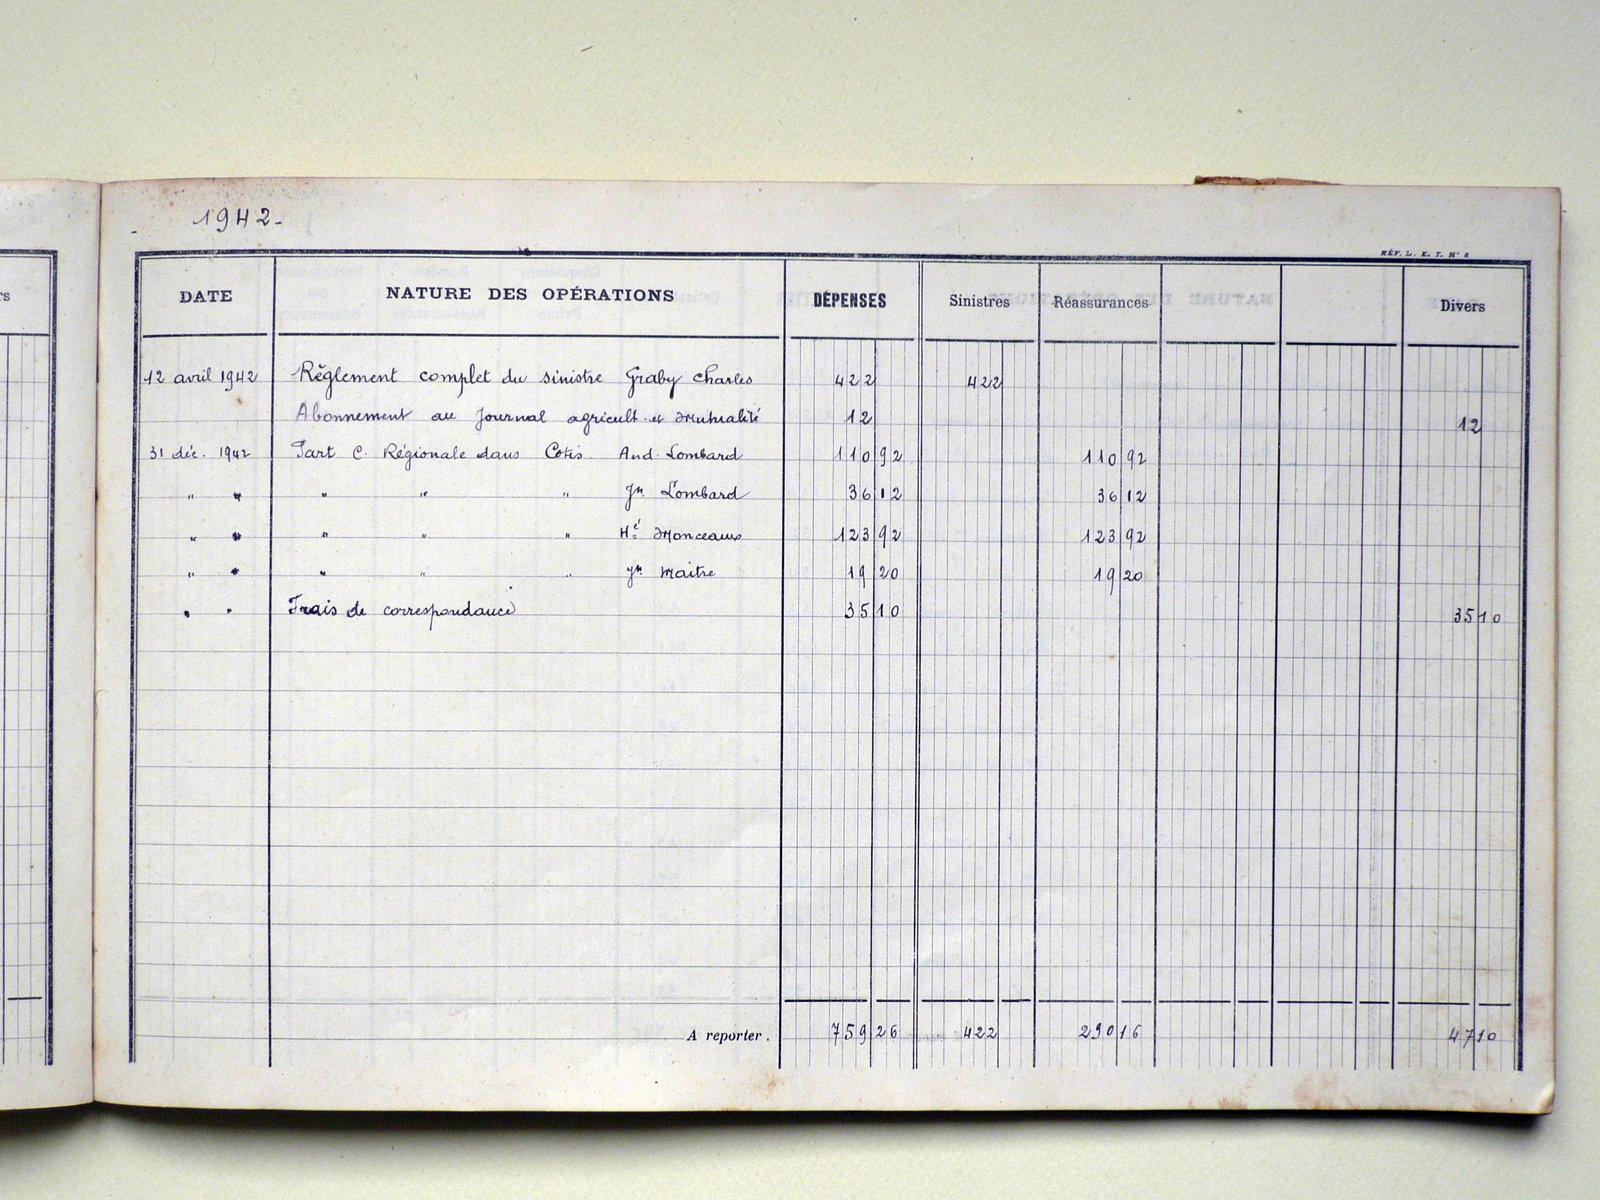 rs
1942-
RÉF. L. E. I. N° 8
DATE NATURE DES OPÉRATIONS DÉPENSES Sinistres Réassurances Divers
12 avril 1942 Règlement complet du sinistre Graby Charles 422 422
Abonnement au Journal agricult. et Mutualité 12 12
31 déc. 1942 Part C. Régionale dans Cotis. And. Lombard 110 92 110 92
" " " " " Jn. Lombard 36 12 36 12
" " " " " Hé Monceaux 123 92 123 92
" " " " " Jn. Maitre 19 20 19 20
" " Frais de correspondance 35 10 35 10
A reporter. 759 26 422 290 16 47 10